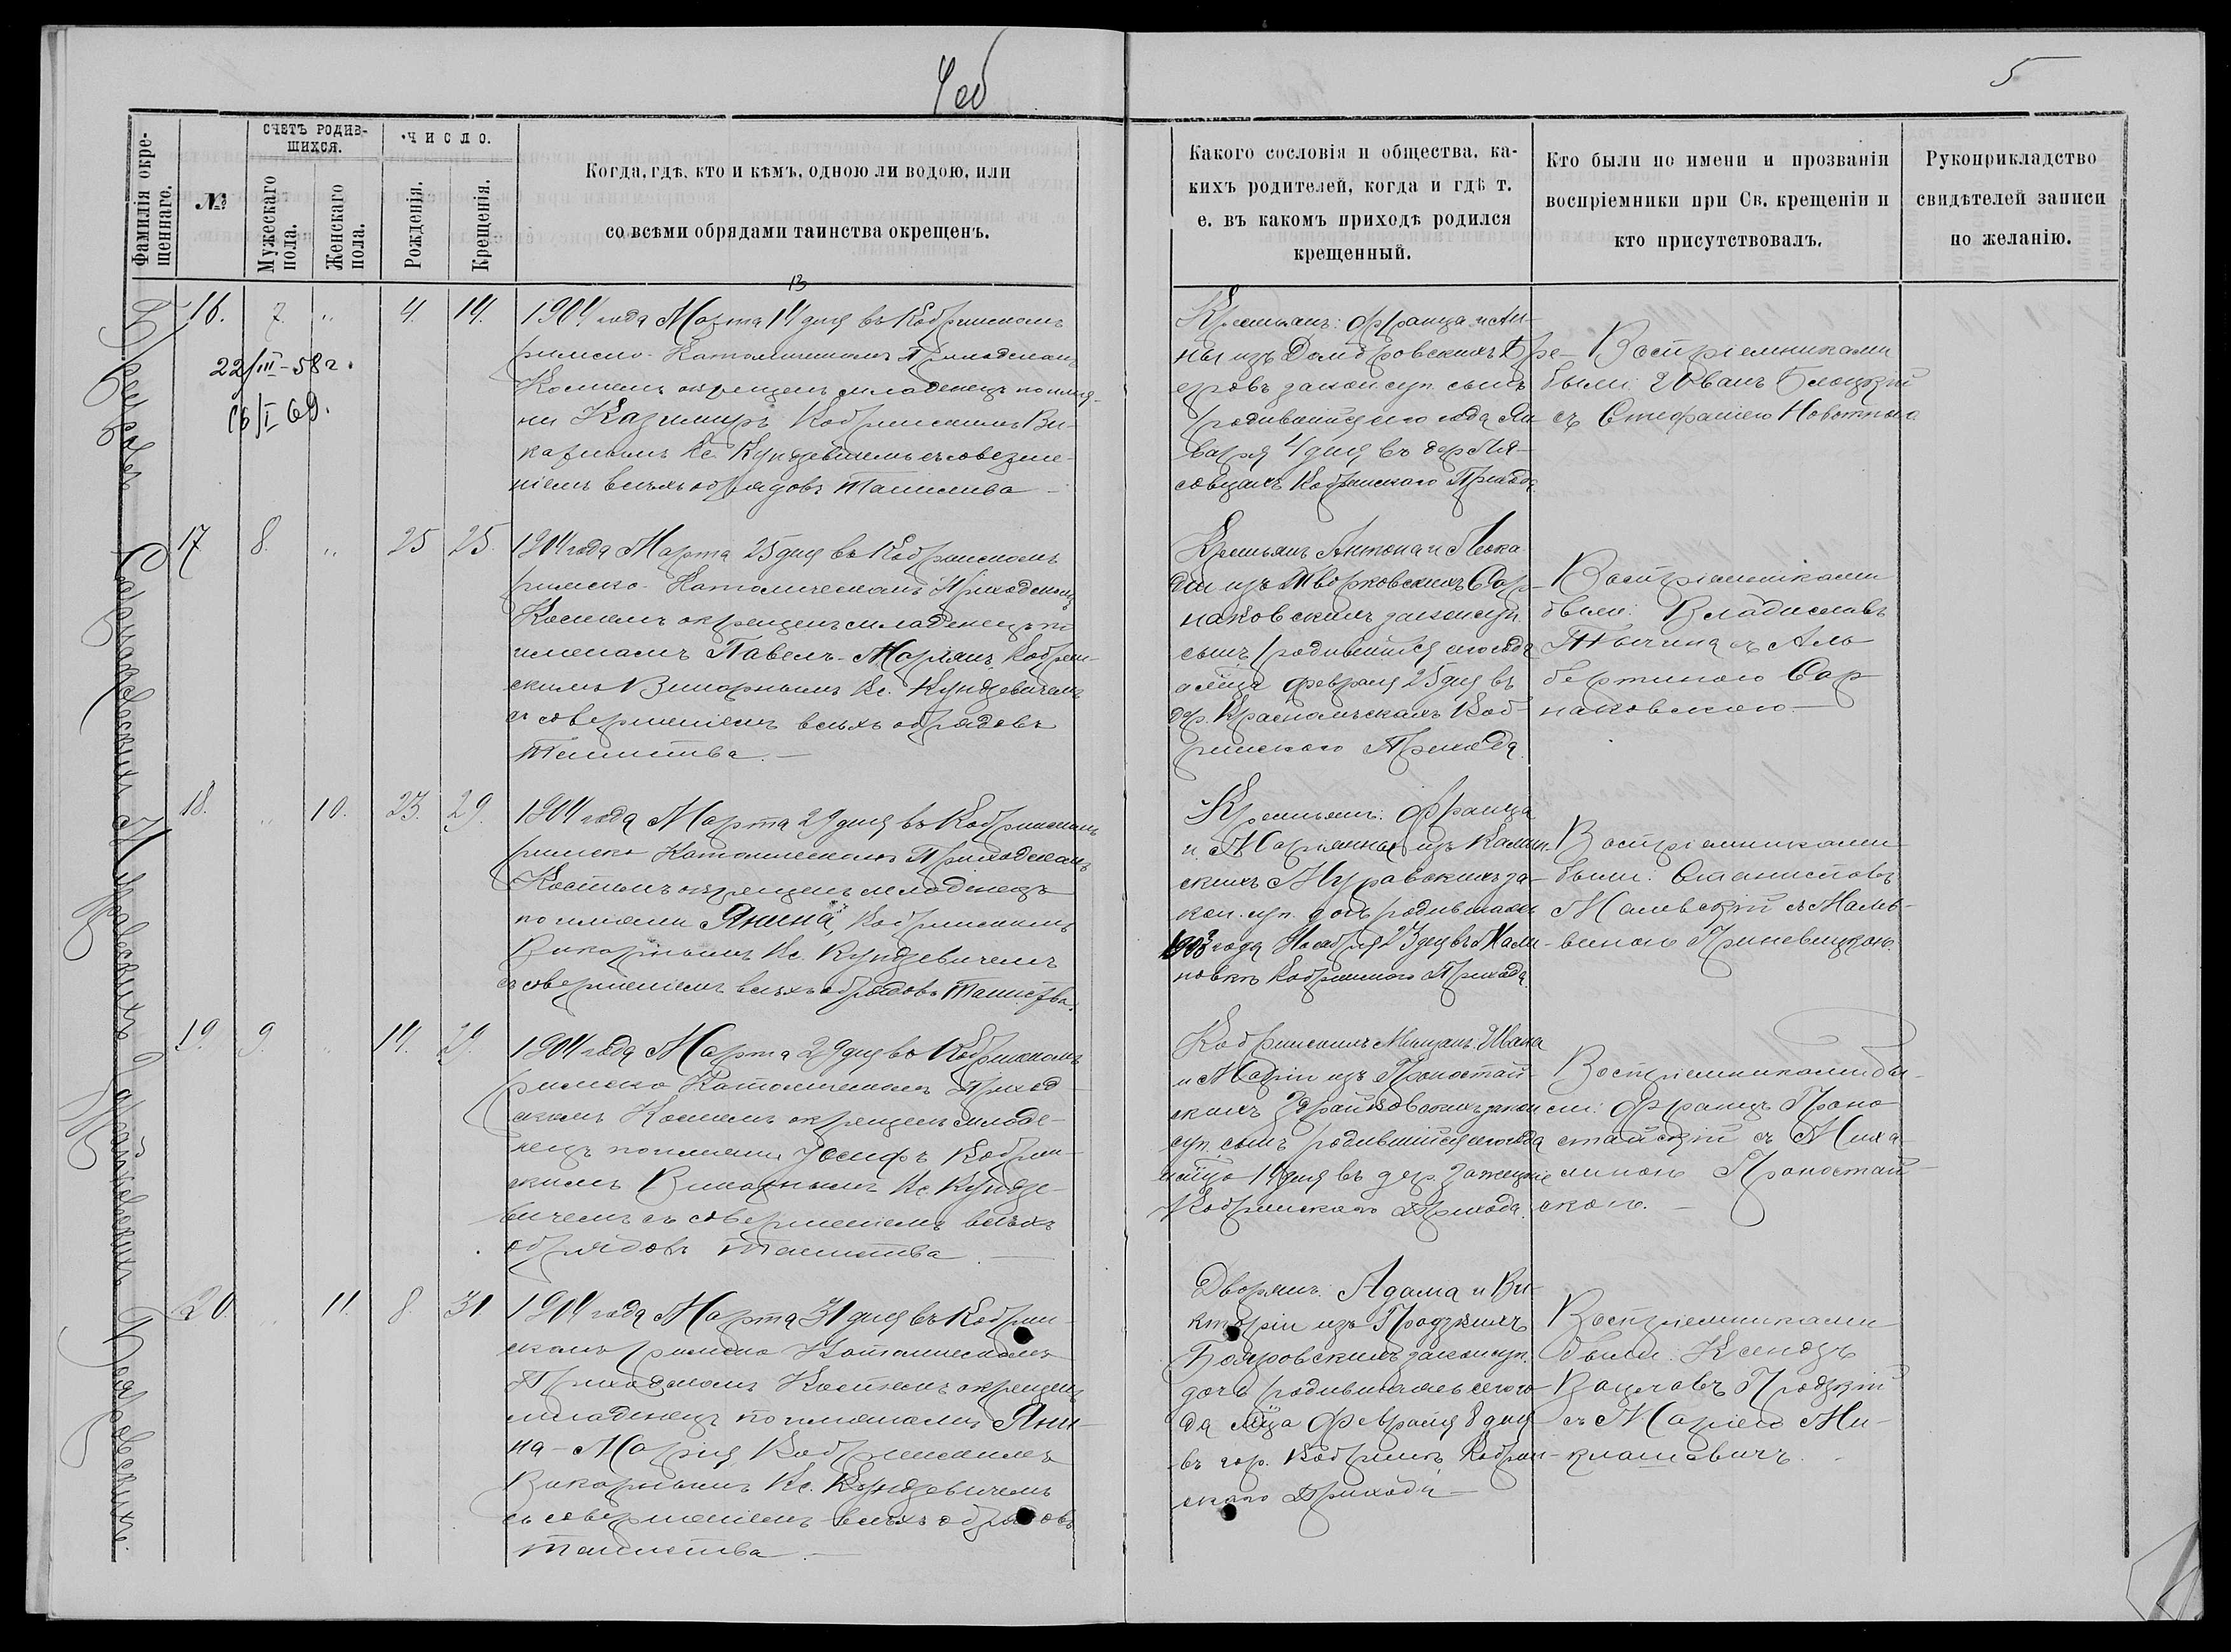 4об
5
Фамилія окре-
щеннаго.
№
СЧЕТЪ РОДИВ-
ШИХСЯ.
Мужескаго
пола.
Женскаго
пола.
ЧИСЛО.
Рожденія.
Крещенія.
Когда, гдѣ, кто и кѣмъ, одною ли водою, или
со всѣми обрядами таинства окрещенъ.
Какого сословія и общества, ка-
кихъ родителей, когда и гдѣ т.
е. въ какомъ приходѣ родился
крещенный.
Кто были по имени и прозваніи
воспріемники при Св. крещеніи и
кто присутствовалъ.
Рукоприкладство
свидѣтелей записи
по желанію.
16. 7. " 4. 14.
22/III-58г.
1904 года Марта 14 дня въ Кобринскомъ
римско-Католическомъ Приходскомъ
Костелѣ окрещенъ младенецъ по име-
ни Казимиръ Кобринскимъ Ви-
карнымъ Кс. Кундзевичемъ съ соверше-
ніемъ всѣхъ обрядовъ Таинства
Крестьянъ: Франца и Ан-
ны изъ Домбровскихъ
закон. суп. сынъ
родившійся сего года Ян-
варя 4 дня въ дер.
Кобринскаго Прихода
Воспріемниками
были: Иванъ
съ Стефаніею
17 8. " 25 25.
1904 года Марта 25 дня въ Кобринскомъ
римско-Католическомъ Приходскомъ
Костелѣ окрещенъ младенецъ по
именамъ Павелъ-Марьянъ Кобрин-
скимъ Викарнымъ Кс. Кундзевичемъ
съ совершеніемъ всѣхъ обрядовъ
Таинства.
Крестьянъ Антона и Леока
діи изъ Творковскихъ Сар-
наковскихъ закон. суп.
сынъ родившійся сего года
мѣсца Февраля 25 дня въ
дер. Коб-
ринскаго Прихода.
Воспріемниками
были: Владиславъ
Тычина съ Аль
бертиною Сар-
наковскою
18. " 10. 23. 29.
1904 года Марта 29 дня въ Кобринскомъ
римско Католическомъ Приходскомъ
Костелѣ окрещенъ младенецъ
по имени Янина, Кобринскимъ
Викарнымъ Кс. Кундзевичемъ
съ совершеніемъ всѣхъ обрядовъ Таинства.
Крестьянъ: Франца
и Марьянны изъ Камин-
скихъ Журавскихъ за-
кон. суп. дочь родившаяся
1903 года Ноября 23 дня въ
Кобринскаго Прихода
Воспріемниками
были: Станиславъ
Малевскій съ Маль-
виною Гриневицкою.
19. 9. " 14. 29.
1904 года Марта 29 дня въ Кобринскомъ
римско Католическомъ Приход
скомъ Костелѣ окрещенъ младе-
нецъ по имени Іосифъ Кобрин-
скимъ Викарнымъ Кс. Кундзе-
вичемъ съ совершеніемъ всѣхъ
обрядовъ Таинства
Кобринскихъ Мѣщанъ: Ивана
и Маріи изъ Пропостай-
скихъ закон
суп. сынъ родившійся сего года
мѣсца 14 дня въ дер.
Кобринскаго Прихода.
Воспріемниками бы-
ли: Францъ Пропо
стайскій съ Миха
линою Пропостай-
скою.
20. " 11. 8. 31.
1904 года Марта 31 дня въ Кобрин-
скомъ римско Католическомъ
Приходскомъ Костелѣ окрещенъ
младенецъ по именамъ Яни-
на-Марія Кобринскимъ
Викарнымъ Кс. Кундзевичемъ
съ совершеніемъ всѣхъ обрядовъ
таинства.
Дворянъ: Адама и Ви-
кторіи изъ Гродзкихъ
закон. суп.
дочь родившаяся сего го-
да мѣсца Февраля 8 дня
въ гор. Кобринѣ Кобрин-
скаго Прихода
Воспріемниками
были: Ксендзъ
Вацлавъ Гродзкій
съ Маріею Ми-
клашевичъ.